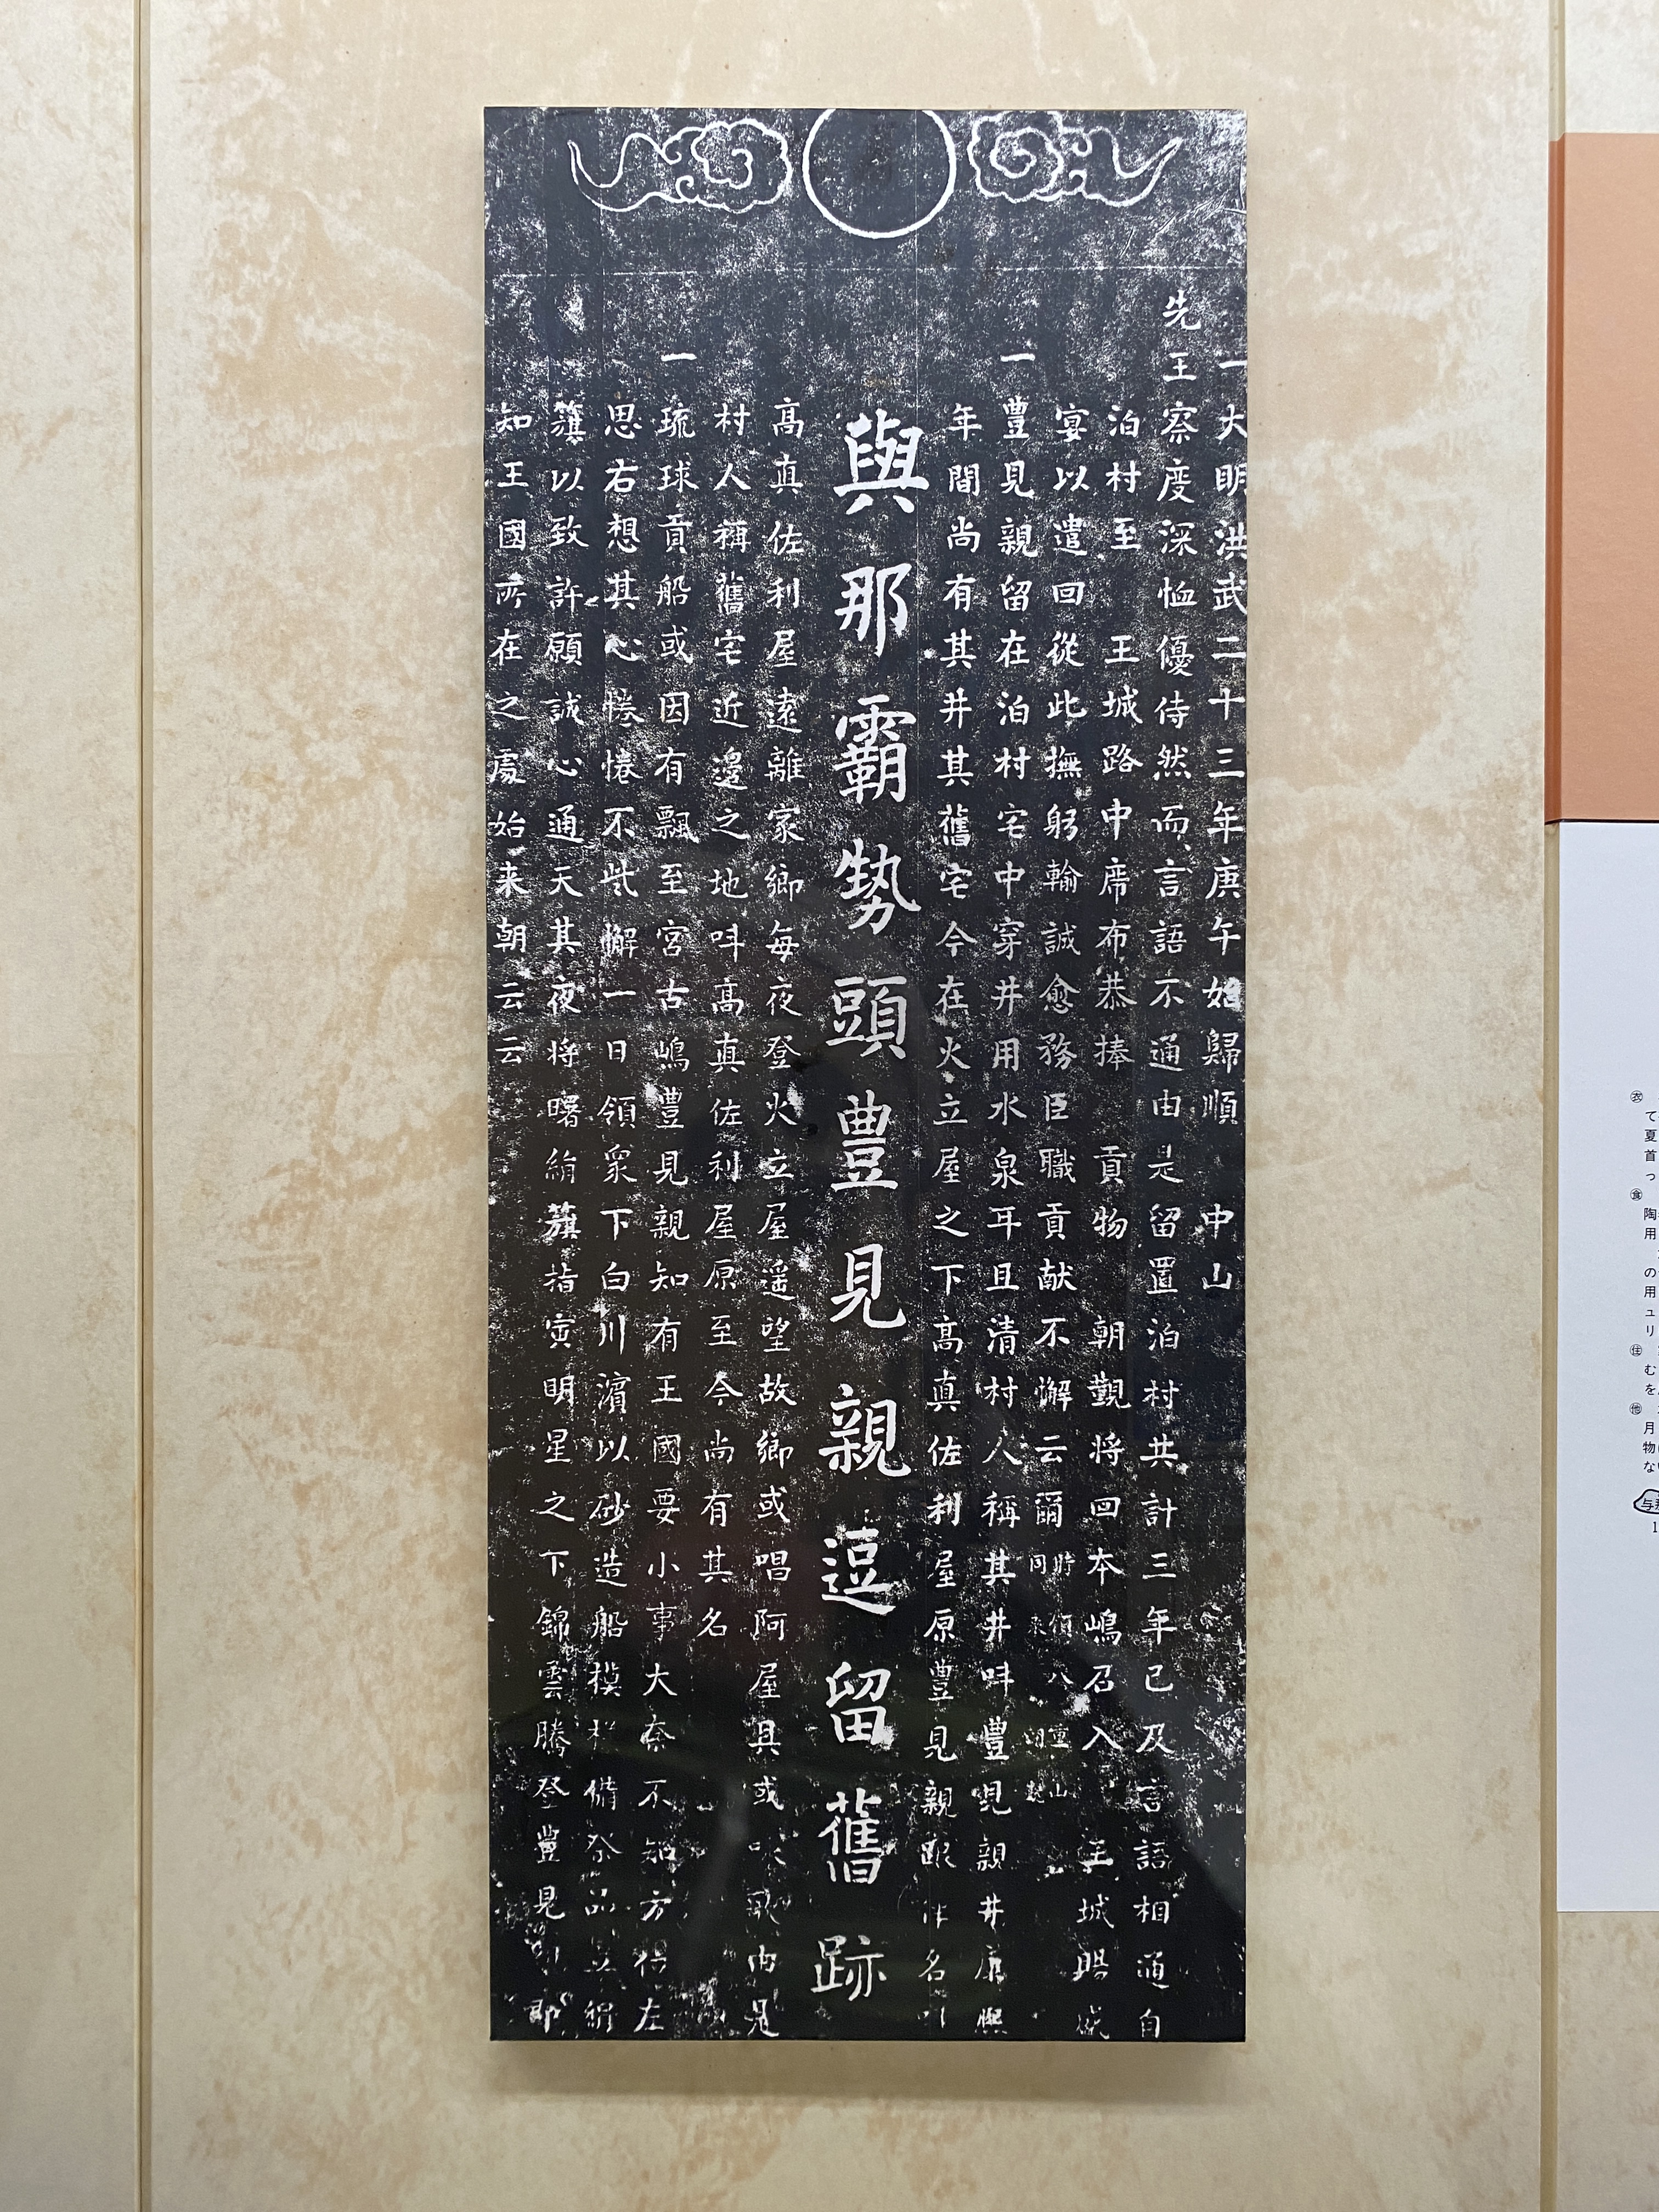 一大明洪武二十三年庚午始歸順　中山
先王察度深恤優待然而言語不通由是留置泊村共計三年已及言語相通自
泊村至　王城路中席布恭捧　貢物　朝覲将回本嶋召入　王城賜盛
宴以遣回從此撫躬輸誠愈務臣職貢献不懈云爾
時領八重山
同来朝覲
一豊見親留在泊村宅中穿井用水泉耳且清村人稱其井呌豊見親井康熙
年間尚有其井其舊宅今在火立屋之下髙真佐利屋原豊見親跟
名
與那霸勢頭豊見親逗留舊跡
髙真佐利屋遠離家鄉毎夜登火立屋遥望故鄉或唱阿屋具或
由是
村人稱舊宅近邊之地呌髙真佐利屋原至今尚有其名
一琉球貢船或因有飄至宮古嶋豊見親知有王國要小事大奈不知方得左
思右想其心惓惓不些懈一日領衆下白川濱以砂造船模様備祭品立絹
籏以致許願誠心通天其夜将曙絹籏指寅明星之下錦雲騰登豊見
即
知王國所在之處始来朝云云
衣
て
夏
首
っ
食
陶
用
の
用
ュ
リ
住
む
を
他
月
物
な